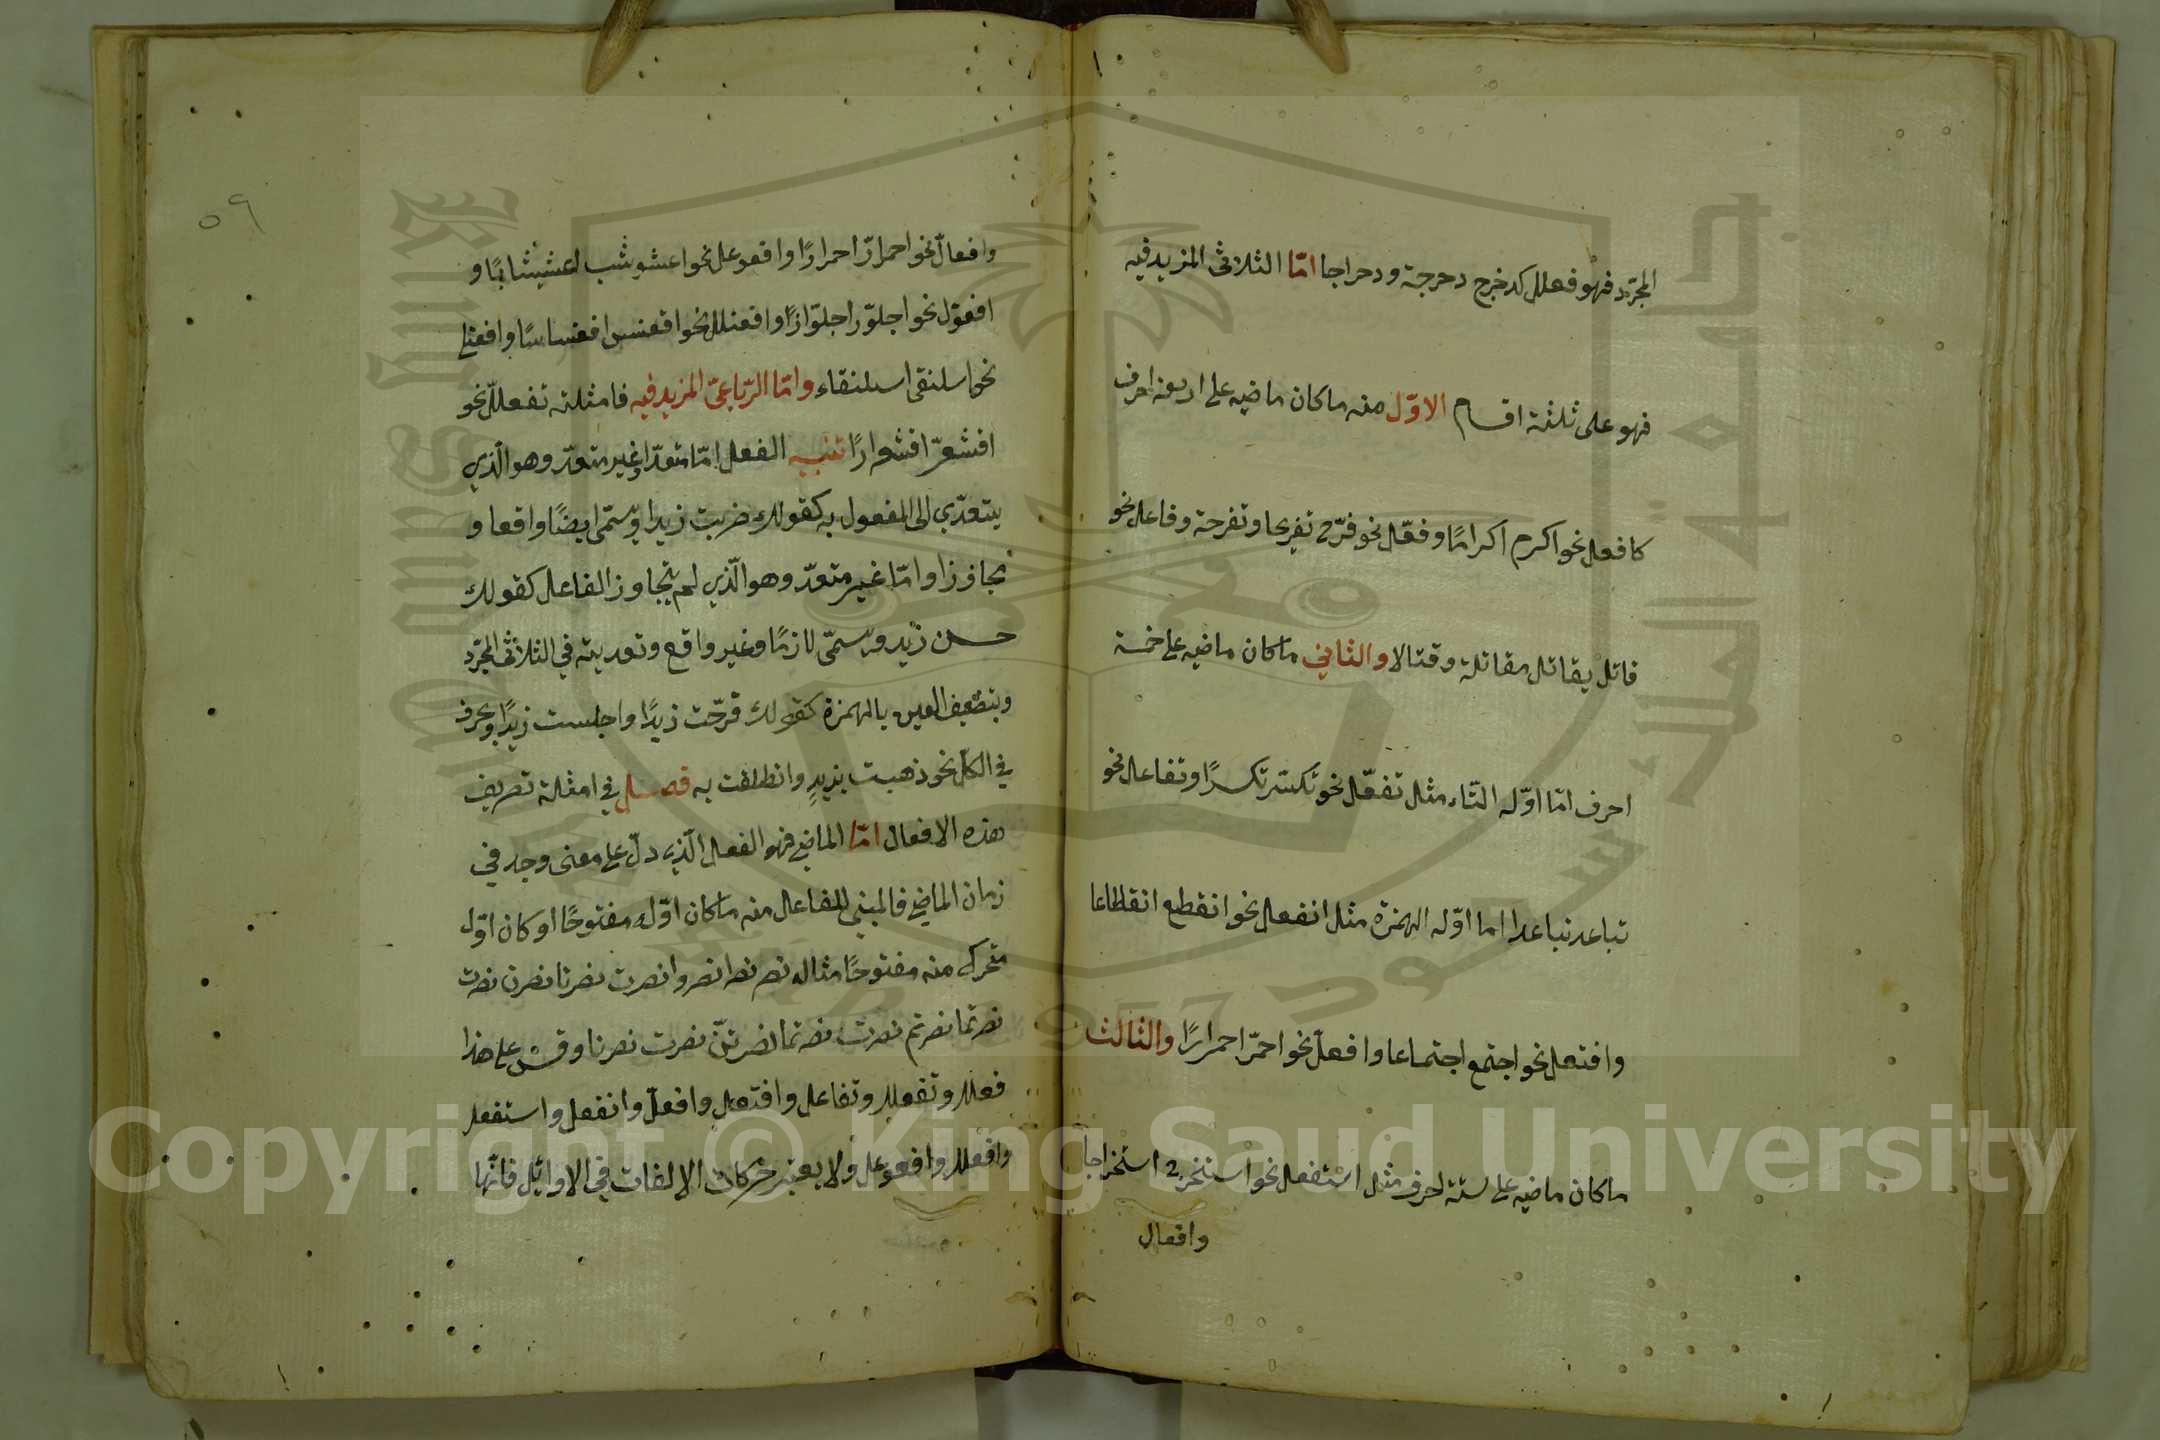 المجرّد فهو فعلل كدخرج دحرجة ودحراجا امّا الثلاثى المزيد فيه
فهو على ثلثة اقسام الاوّل منه ما كان ماضيه على اربعة احرف
كافعل نحو اكرم اكرامًا وفعّل نحو فرّح تفريحا وتفرحة وفاعل نحو
قاتل يقاتل مقاتلة وقتالا والثاني ماكان ماضيه على خمسة
احرف امّا اوّله التّاء مثل تفعّل نحو تكسّر تكسرًا وتفاعل نحو
تباعد تباعدا اما اوّله الهمزة مثل انفعل نحو انقطع انقطاعا
وافتعل نحو اجتمع اجتماعا وافعلّ نحو احمرّ احمرارًا والثالث
ماكان ماضيه على ستة احرف مثل استفعل نحو استخرج استخراجا
وافعال
٥٩
وافعالّ نحو احمارّ احمرارًا وافعوعل نحو اعشوشب اعشيشابًا و
افعوّل نحو اجلوّز اجلوّازًا وافعنلل نحو اقعنسس اقعنساسًا وافعنلى
نحو اسلنقى اسلنقاء وامّا الرّباعىّ المزيد فيه فامثلته تفعلل نحو
اقشعرّ اقشعرارًا تنبيه الفعل امّا متعدّ او غير متعدّ وهو الّذي
يتعدّي الى المفعول به كقولك ضربت زيدا ويسمّى ايضًا واقعا و
مجاوزا وامّا غير متعدّ وهو الّذي لم يتجاوز الفاعل كقولك
حسن زيد ويسمّى لازمًا وغير واقع وتعديته في الثلاثى المجرّد
وبتضعيف العين وبالهمزة كقولك فرّحت زيدًا واجلست زيدًا وبحرف
في الكلّ نحو ذهبت بزيدٍ وانطلقت به فصل في امثلة تصريف
هذه الافعال امّا الماضي فهو الفعل الّذي دلّ على معنى وجد في
زمان الماضي فالمبنى للفاعل منه ماكان اوّله مفتوحًا او كان اوّل
متحرك منه مفتوحًا مثاله نصر نصرا نصروا نصرت نصرتا نصرن نصرت
نصرتما نصرتم نصرت نصرتما نصرتنّ نصرت نصرنا وقس على هذا
فعلل وتفعلل وتفاعل وافتعل وافعلّ وانفعل واستفعل
وافعلل وافعوعل ولا يعتبر حركات الالفات في الاوائل فانّها
Copyright © King Saud University